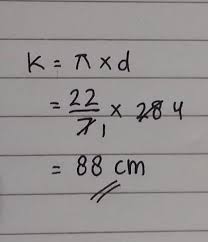 K = π × d
= 22/7 1 × 28 4
= 88 cm